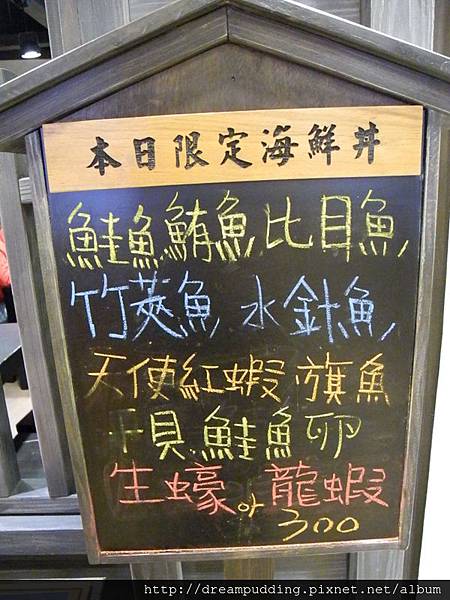 本日限定海鮮丼
鮭魚 鮪魚 比目魚
竹莢魚 水針魚
天使紅蝦 旗魚
干貝 鮭魚卵
生蠔 or 龍蝦
300
http://dreampudding.pixnet.net/album